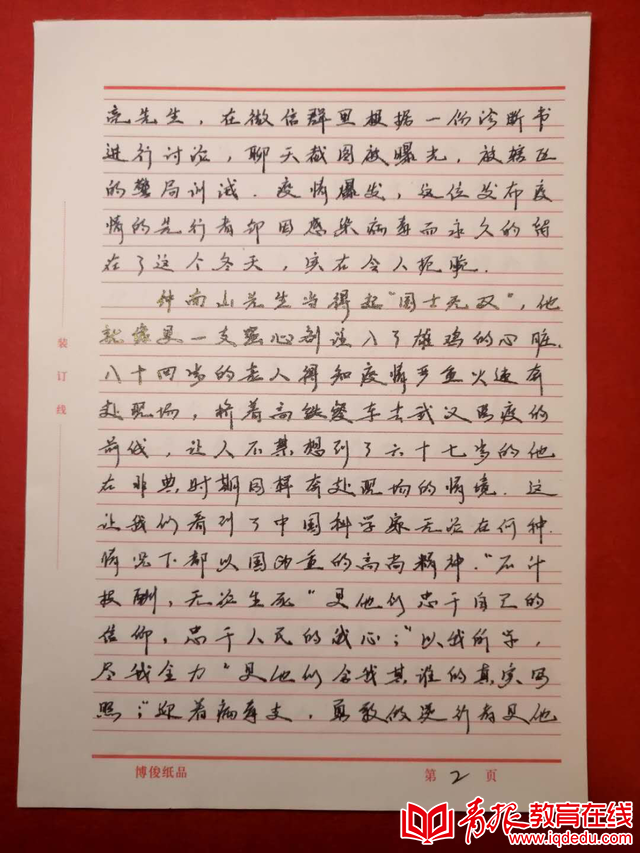 亮先生，在微信群里根据一份诊断书
进行讨论，聊天截图被曝光，被辖区
的警局训诫．疫情爆发，这位发布疫
情的先行者却因感染病毒而永久的留
在了这个冬天，实在令人扼腕．
钟南山先生当得起“国士无双”，他
就像是一支强心剂注入了雄鸡的心脏．
八十四岁的老人得知疫情严重火速奔
赴现场，挤着高铁餐车去武汉防疫的
前线，让人不禁想到了六十七岁的他
在非典时期同样奔赴现场的情境．这
让我们看到了中国科学家无论在何种
情况下都以国为重的高尚精神．“不计
报酬，无论生死”是他们忠于自己的
信仰，忠于人民的诚心；“以我所学，
尽我全力”是他们舍我其谁的真实写
照；“迎着病毒支，勇敢做逆行者是他
装订线
博俊纸品
第2页
青报教育在线
www.iqdedu.com